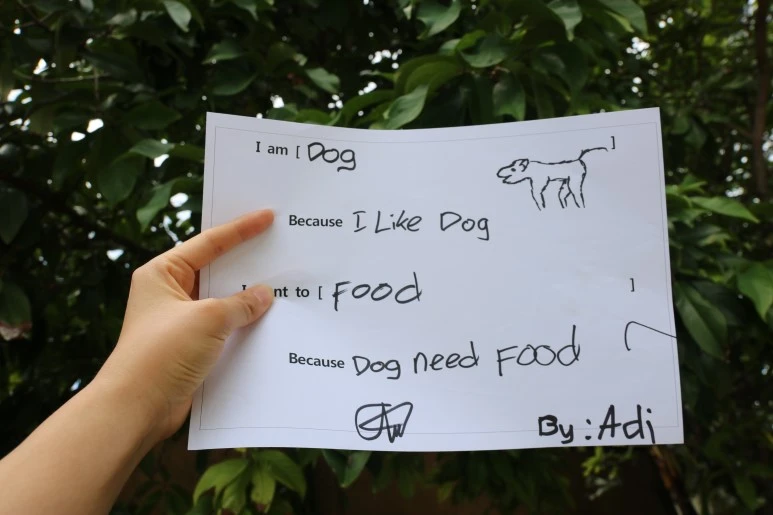 I am [ Dog ]
Because I Like Dog
I nt to [ Food ]
Because Dog need Food
By : Adi